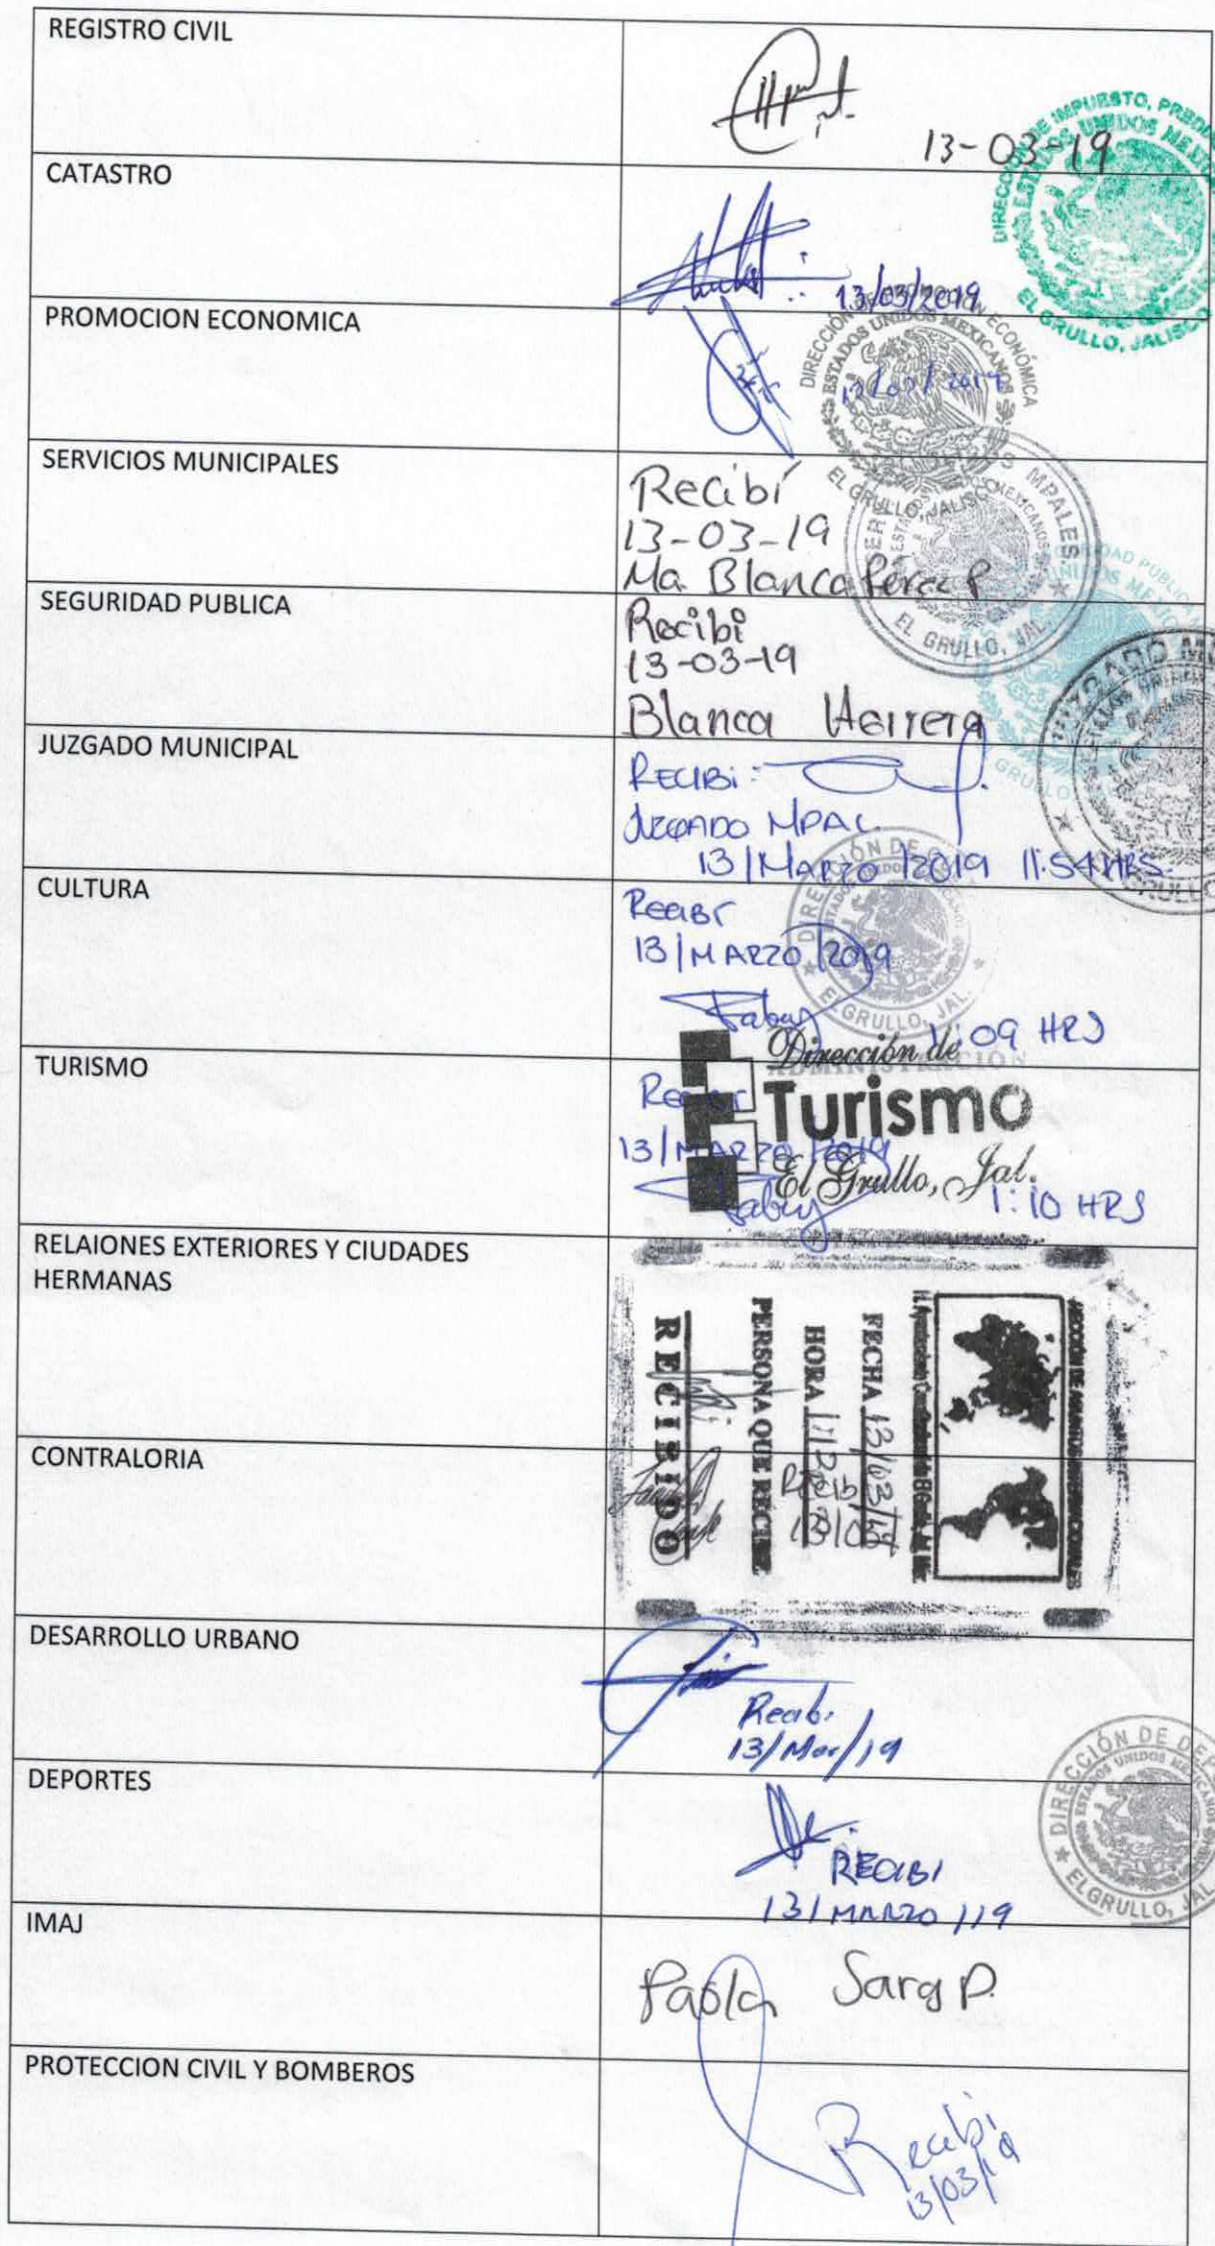 REGISTRO CIVIL
13-03-19
DIRECCIÓN DE IMPUESTO, PREDI
ESTADOS UNIDOS MEXI
EL GRULLO, JALISCO
CATASTRO
13/03/2019
PROMOCION ECONOMICA
DIRECCIÓN DE PROMOCIÓN ECONÓMICA
ESTADOS UNIDOS MEXICANOS
13/03/2019
EL GRULLO, JALISCO
SERVICIOS MUNICIPALES
Recibí
13-03-19
Ma. Blanca Pérez P
MPALES
ESTADOS MEXICANOS
EL GRULLO, JAL.
SEGURIDAD PUBLICA
Recibi
13-03-19
Blanca Herrera
SEGURIDAD PÚBLICA
UNIDOS MEXIC
GRULLO
JUZGADO MUNICIPAL
RECIBi:
JUZGADO MPAL.
13/MARZO/2019 11:54 HRS.
JUZGADO MU
GRULLO
CULTURA
Recibí
13/MARZO/2019
Faby
1:09 HRS
DIRECCIÓN DE
EL GRULLO, JAL.
ADMINISTRACIÓN
TURISMO
Dirección de
Turismo
El Grullo, Jal.
Recibí
13/MARZO/2019
Faby
1:10 HRS
RELAIONES EXTERIORES Y CIUDADES
HERMANAS
FECHA 13/03/19
HORA
PERSONA QUE RECIBE
RECIBIDO
CONTRALORIA
Recibí
DESARROLLO URBANO
Recibi
13/Mar/19
DEPORTES
RECIBI
13/MARZO/19
DIRECCIÓN DE DEP
ESTADOS UNIDOS MEXICANOS
EL GRULLO, JAL
IMAJ
Paola Sara P.
PROTECCION CIVIL Y BOMBEROS
Recibi
13/03/19